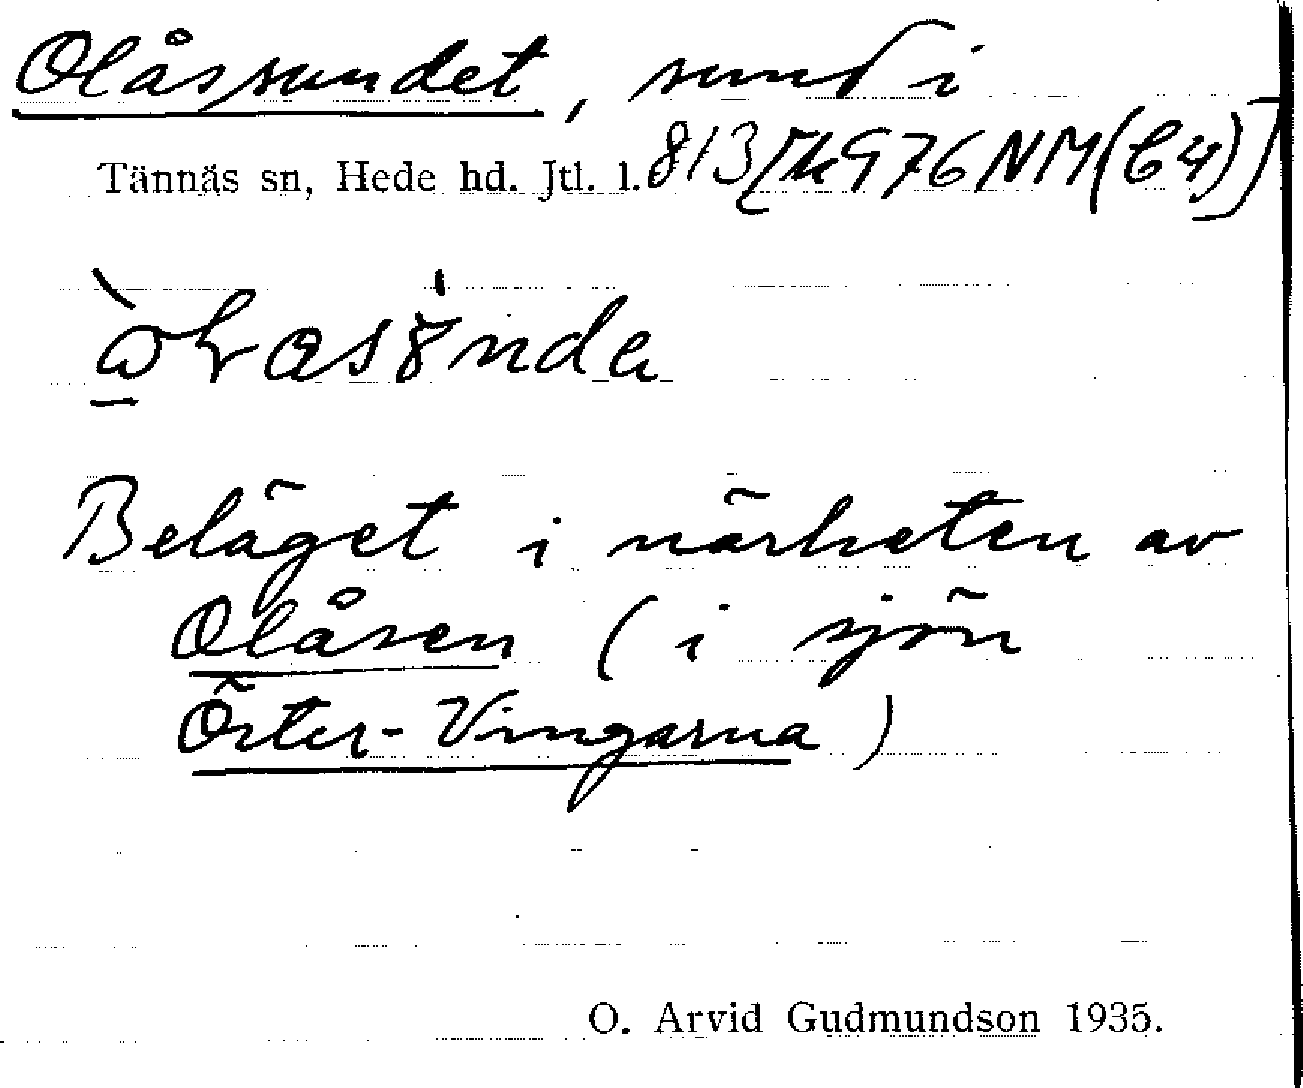 Olåssundet, sund i
Tännäs sn, Hede hd. Jtl. l. 813 [k 976 NM (C4)]
Beläget i närheten av
Olåsen (i sjön
Öster-Vingarna)
O. Arvid Gudmundson 1935.